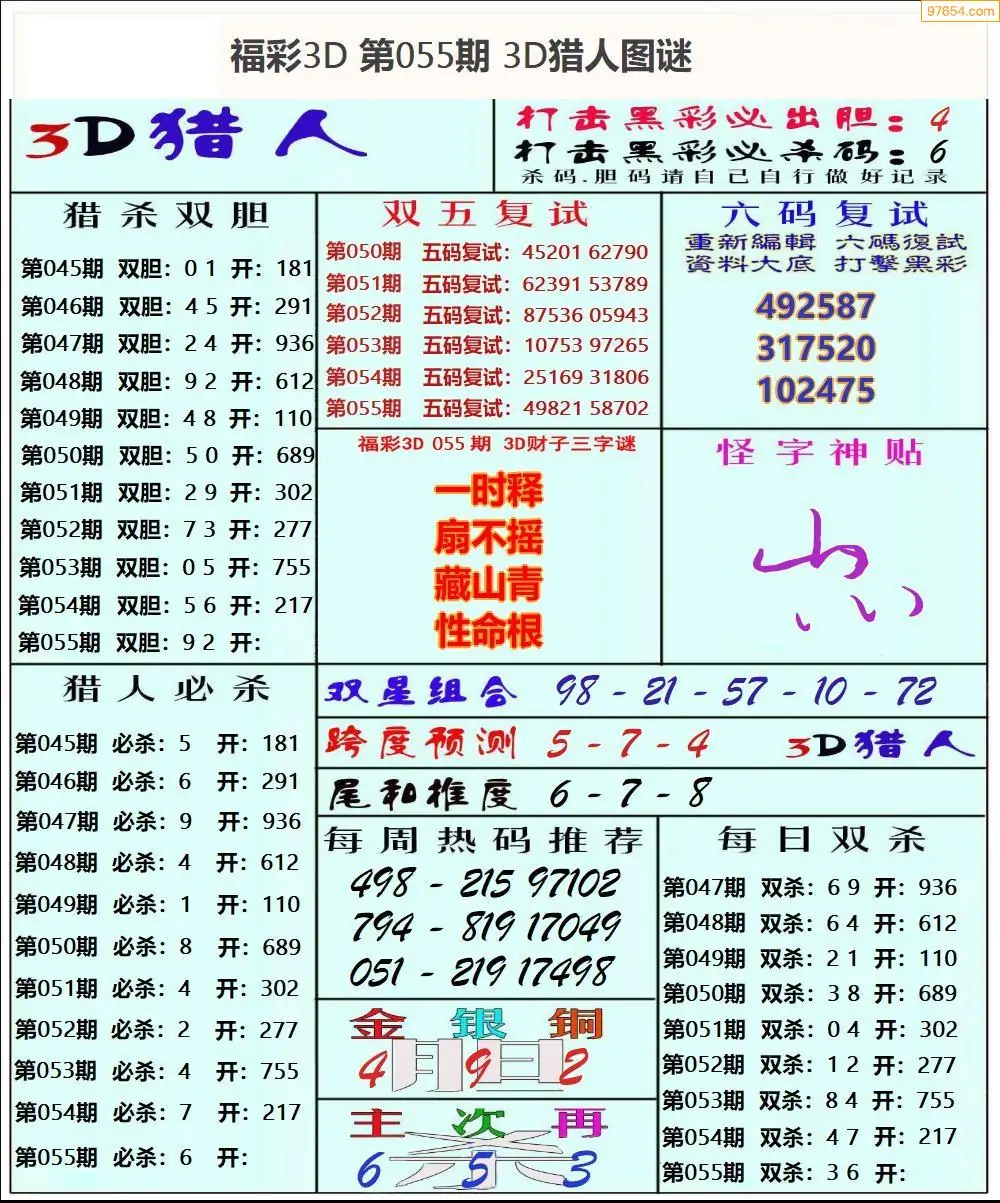 97654.com
福彩3D 第055期 3D猎人图谜
3D猎人
打击黑彩必出胆：4
打击黑彩必杀码：6
杀码.胆码请自己自行做好记录
猎杀双胆
第045期 双胆：0 1 开：181
第046期 双胆：4 5 开：291
第047期 双胆：2 4 开：936
第048期 双胆：9 2 开：612
第049期 双胆：4 8 开：110
第050期 双胆：5 0 开：689
第051期 双胆：2 9 开：302
第052期 双胆：7 3 开：277
第053期 双胆：0 5 开：755
第054期 双胆：5 6 开：217
第055期 双胆：9 2 开：
双五复试
第050期 五码复试：45201 62790
第051期 五码复试：62391 53789
第052期 五码复试：87536 05943
第053期 五码复试：10753 97265
第054期 五码复试：25169 31806
第055期 五码复试：49821 58702
六码复试
重新編輯 六碼復試
資料大底 打擊黑彩
492587
317520
102475
福彩3D 055 期 3D财子三字谜
一时释
扇不摇
藏山青
性命根
怪字神贴
猎人必杀
第045期 必杀：5 开：181
第046期 必杀：6 开：291
第047期 必杀：9 开：936
第048期 必杀：4 开：612
第049期 必杀：1 开：110
第050期 必杀：8 开：689
第051期 必杀：4 开：302
第052期 必杀：2 开：277
第053期 必杀：4 开：755
第054期 必杀：7 开：217
第055期 必杀：6 开：
双星组合 98 - 21 - 57 - 10 - 72
跨度预测 5 - 7 - 4 3D猎人
尾和推度 6 - 7 - 8
每周热码推荐
498 - 215 97102
794 - 819 17049
051 - 219 17498
金 银 铜
4 9 2
主 次 再
杀
6 5 3
每日双杀
第047期 双杀：6 9 开：936
第048期 双杀：6 4 开：612
第049期 双杀：2 1 开：110
第050期 双杀：3 8 开：689
第051期 双杀：0 4 开：302
第052期 双杀：1 2 开：277
第053期 双杀：8 4 开：755
第054期 双杀：4 7 开：217
第055期 双杀：3 6 开：